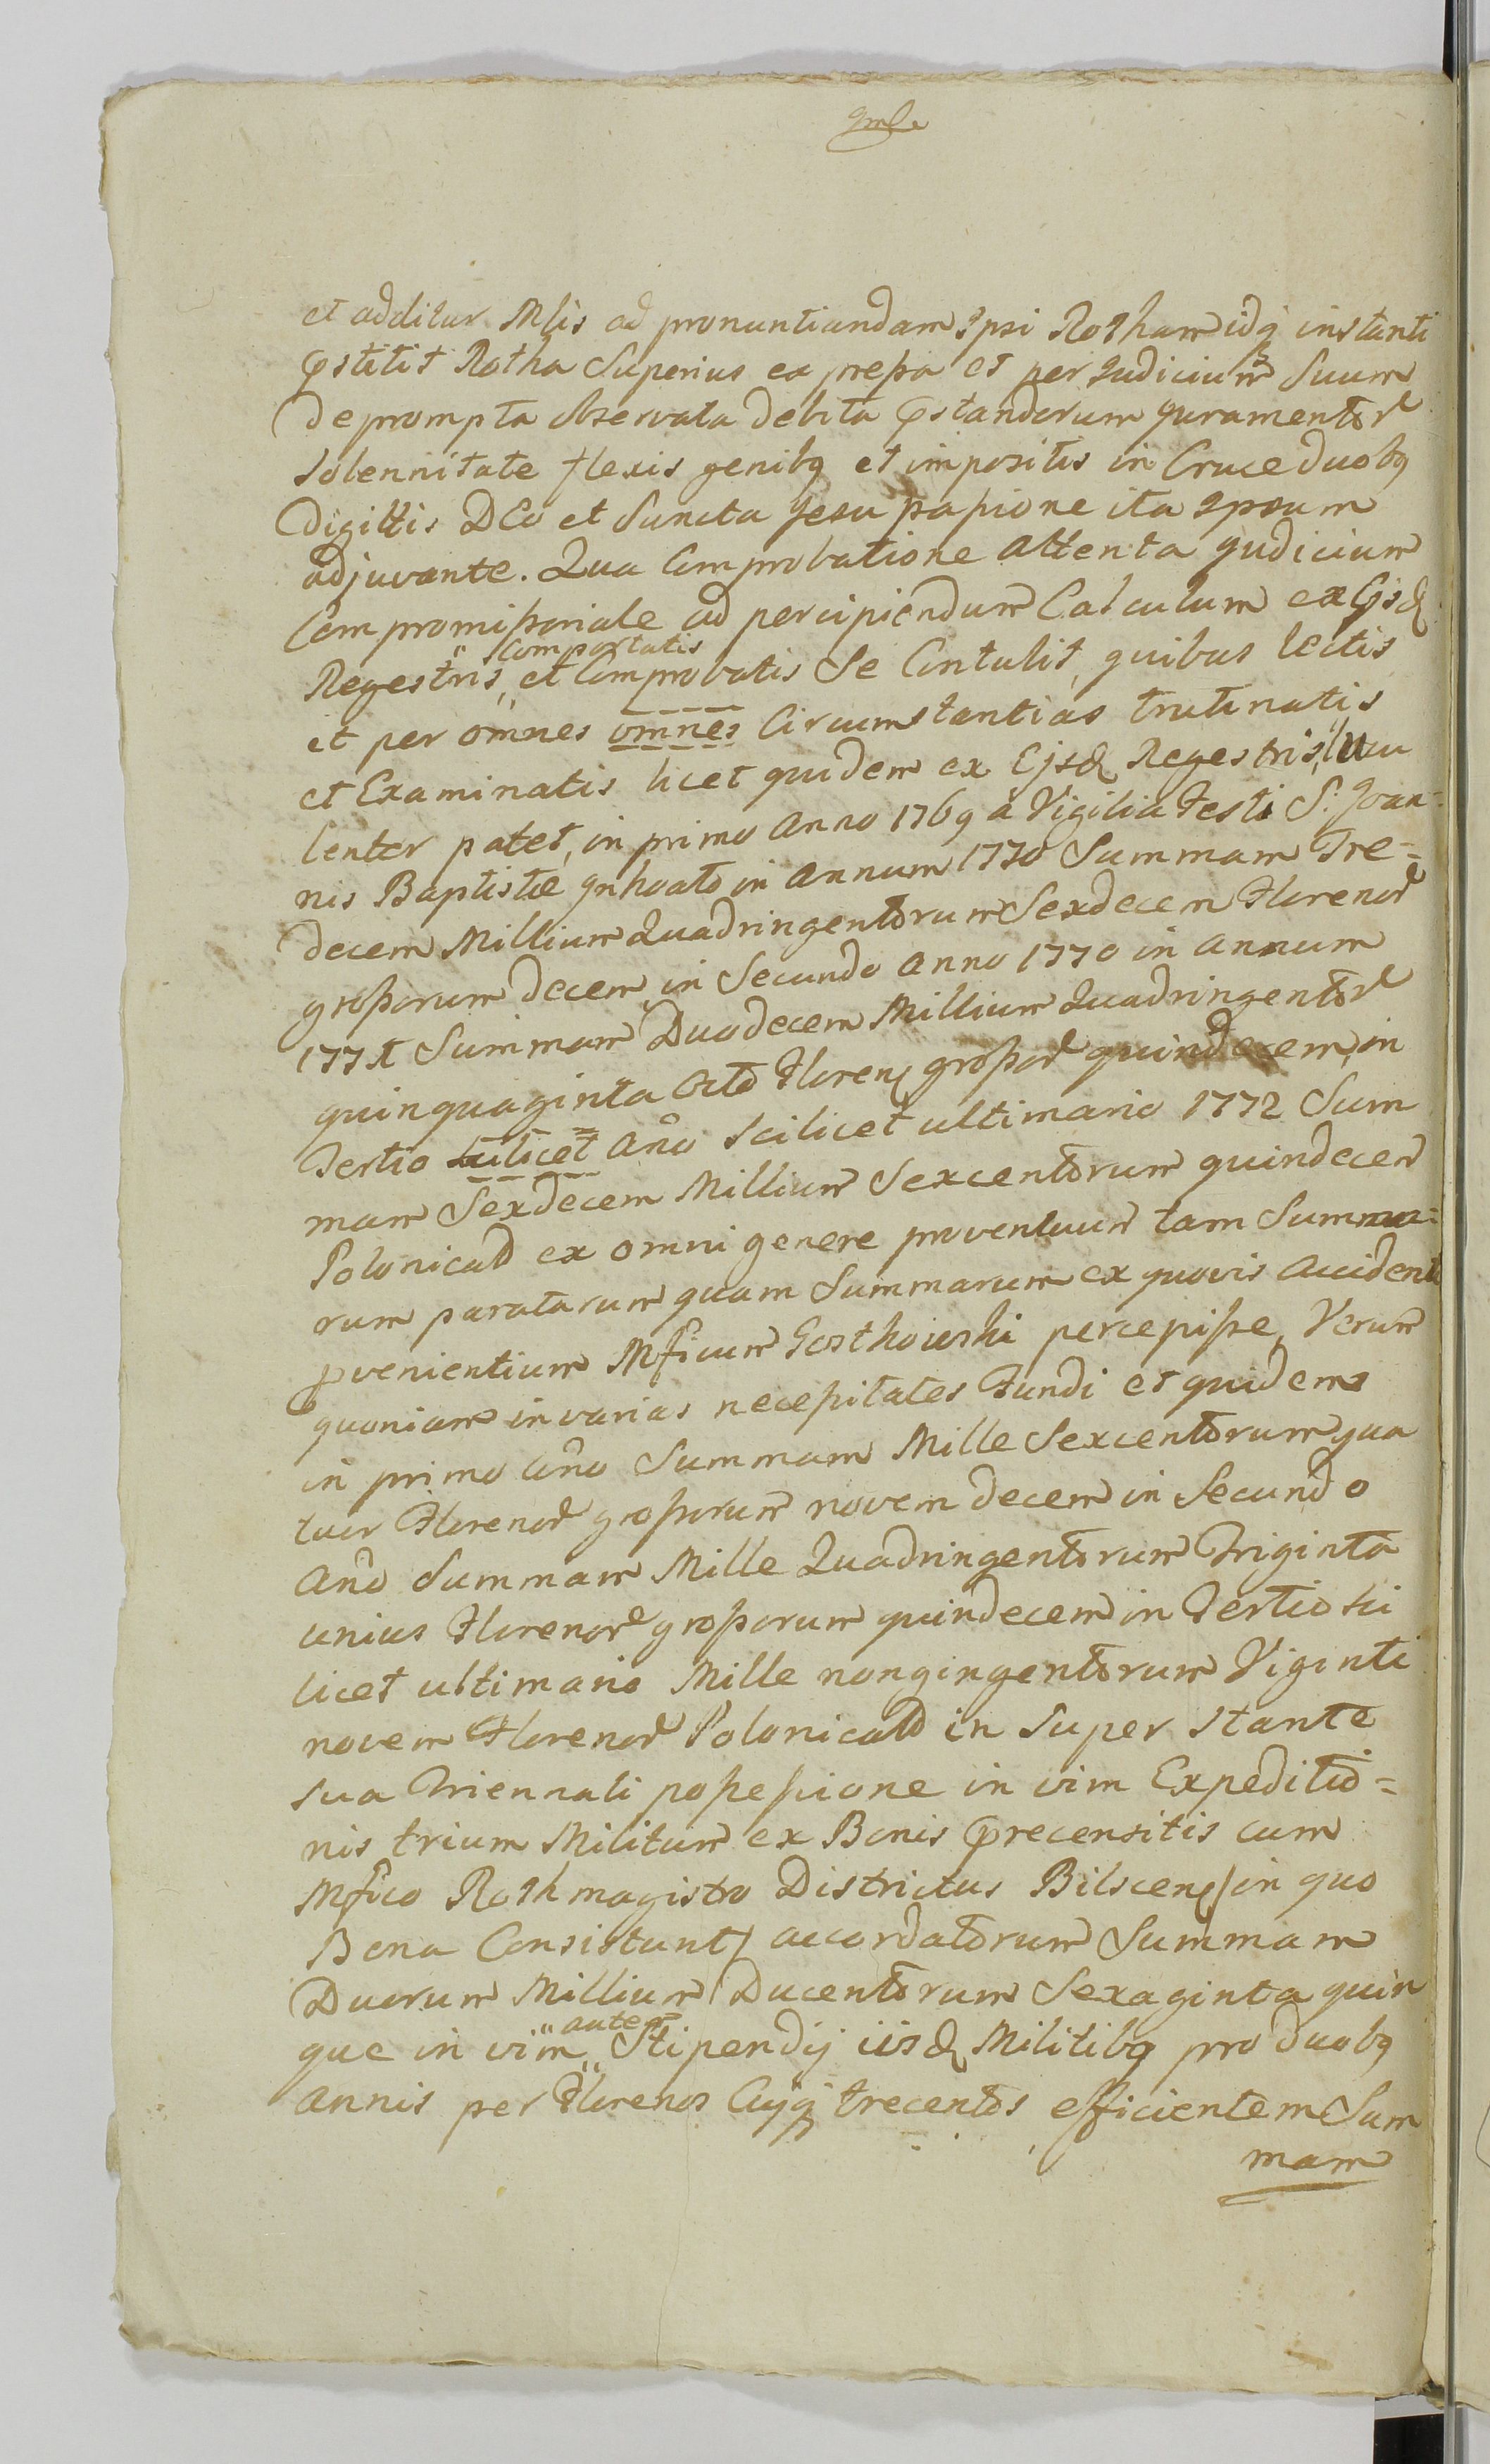 et additur Mlis ad pronuntiandam Ipsi Rotham idq instanti
Pstitit Rotha Superius expressa et per Iudicium Suum
deprompta observata debita Pstandorum Juramentor
Solennitate flexis genibq et impositis in Cruce duobq
digittis DEo et Sancta Jesu passione ita Ipsum
adjuvante. Qua Comprobatione attenta Judicium
Compromissoriale ad percipiendum Calculum ex Ejsd
Regestris, et Comprobatis Se Contulit, quibus lectis
comportatis
et per omnes omnes Circumstantias trutinatis
et Examinatis licet quidem ex Ejsd Regestris, lucu
lenter patet, in primo Anno 1769 à Vigilia Festi S: Joan-
nis Baptistæ Inhoato in Annum 1770 Summam Tre=
decem Millium Quadringentorum Sexdecem Florenor
grossorum decem, in Secundo Anno 1770 in Annum
1771 Summam Duodecem Millium Quadringentor
quinquaginta Octo Floren grossor quindecem, in
Tertio scilicet Año scilicet ultimario 1772 Sum
mam Sexdecem Millium Sexcentorum quindecem
Polonical ex omni genere proventuum tam Summa=
rum paratarum quam Summarum ex quovis accidenti
pvenientium Mficum Gosthowski percepisse, Verum
quoniam in varias necessitates Fundi et quidem
in primo año Summam Mille Sexcentorum qua
tuor Florenor grossorum novem decem in Secundo
Año Summam Mille Quadringentorum Triginta
unius Florenor grossorum quindecem in Tertio sci
licet ultimario Mille nongingentorum Viginti
novem Florenor Polonical in super stante
sua Triennali possessione in vim Expeditio=
nis trium Militum ex Bonis Precensitis cum
Mfico Rothmagistro Districtus Bilscen /in quo
Bona Consistunt/ accordatorum Summam
Duorum Millium Ducentorum Sexaginta quin
que in vim autem Stipendij iisd Militibq pro duobq
annis per Florenos Cujq trecentos, efficientem Sum
mam